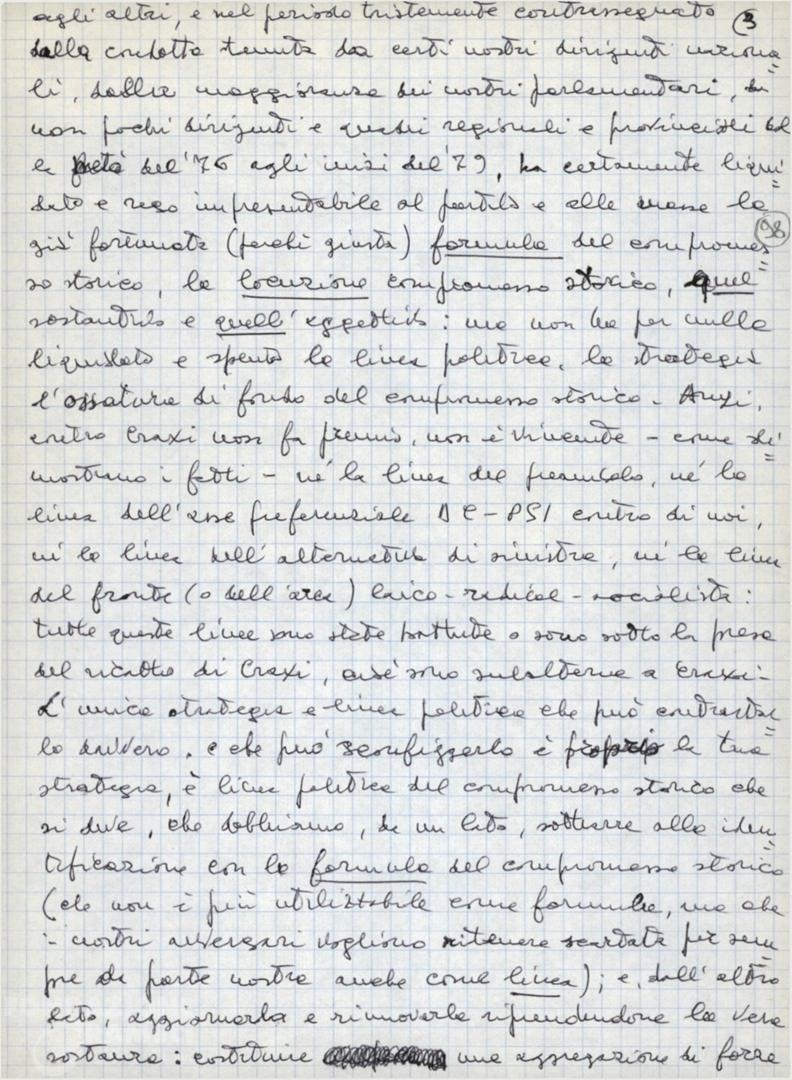 agli altri, e nel periodo tristemente contrassegnato 3
dalla condotta tenuta da certi nostri dirigenti naziona=
li, dalla maggioranza dei nostri parlamentari, da
non pochi dirigenti e quadri regionali e provinciali dal
la metà del '76 agli inizi del '79, ha certamente liqui=
dato e reso impresentabile al partito e alle masse la
98
già fortunata (perché giusta) formula del compromes=
so storico, la locuzione compromesso storico, quel
sostantivo e quell'aggettivo: ma non ha per nulla
liquidato e spento la linea politica, la strategia
l'ossatura di fondo del compromesso storico. Anzi,
contro Craxi non fa premio, non è vincente - come di=
mostrano i fatti - né la linea del preambolo, né la
linea dell'asse preferenziale DC-PSI contro di noi,
né la linea dell'alternativa di sinistra, né la linea
del fronte (o dell'area) laico-radical-socialista:
tutte queste linee sono state battute o sono sotto la presa
del ricatto di Craxi, cioè sono subalterne a Craxi.
L'unica strategia e linea politica che può contrastar=
lo davvero, e che può sconfiggerlo è proprio la tua
strategia, è linea politica del compromesso storico che
si deve, che dobbiamo, da un lato, sottrarre alla iden=
tificazione con la formula del compromesso storico
(che non è più utilizzabile come formula, ma che
i nostri avversari vogliono ritenere scartata per sem=
pre da parte nostra anche come linea); e, dall'altro
lato, aggiornarla e rinnovarla riprendendone la vera
sostanza: costituire una aggregazione di forze